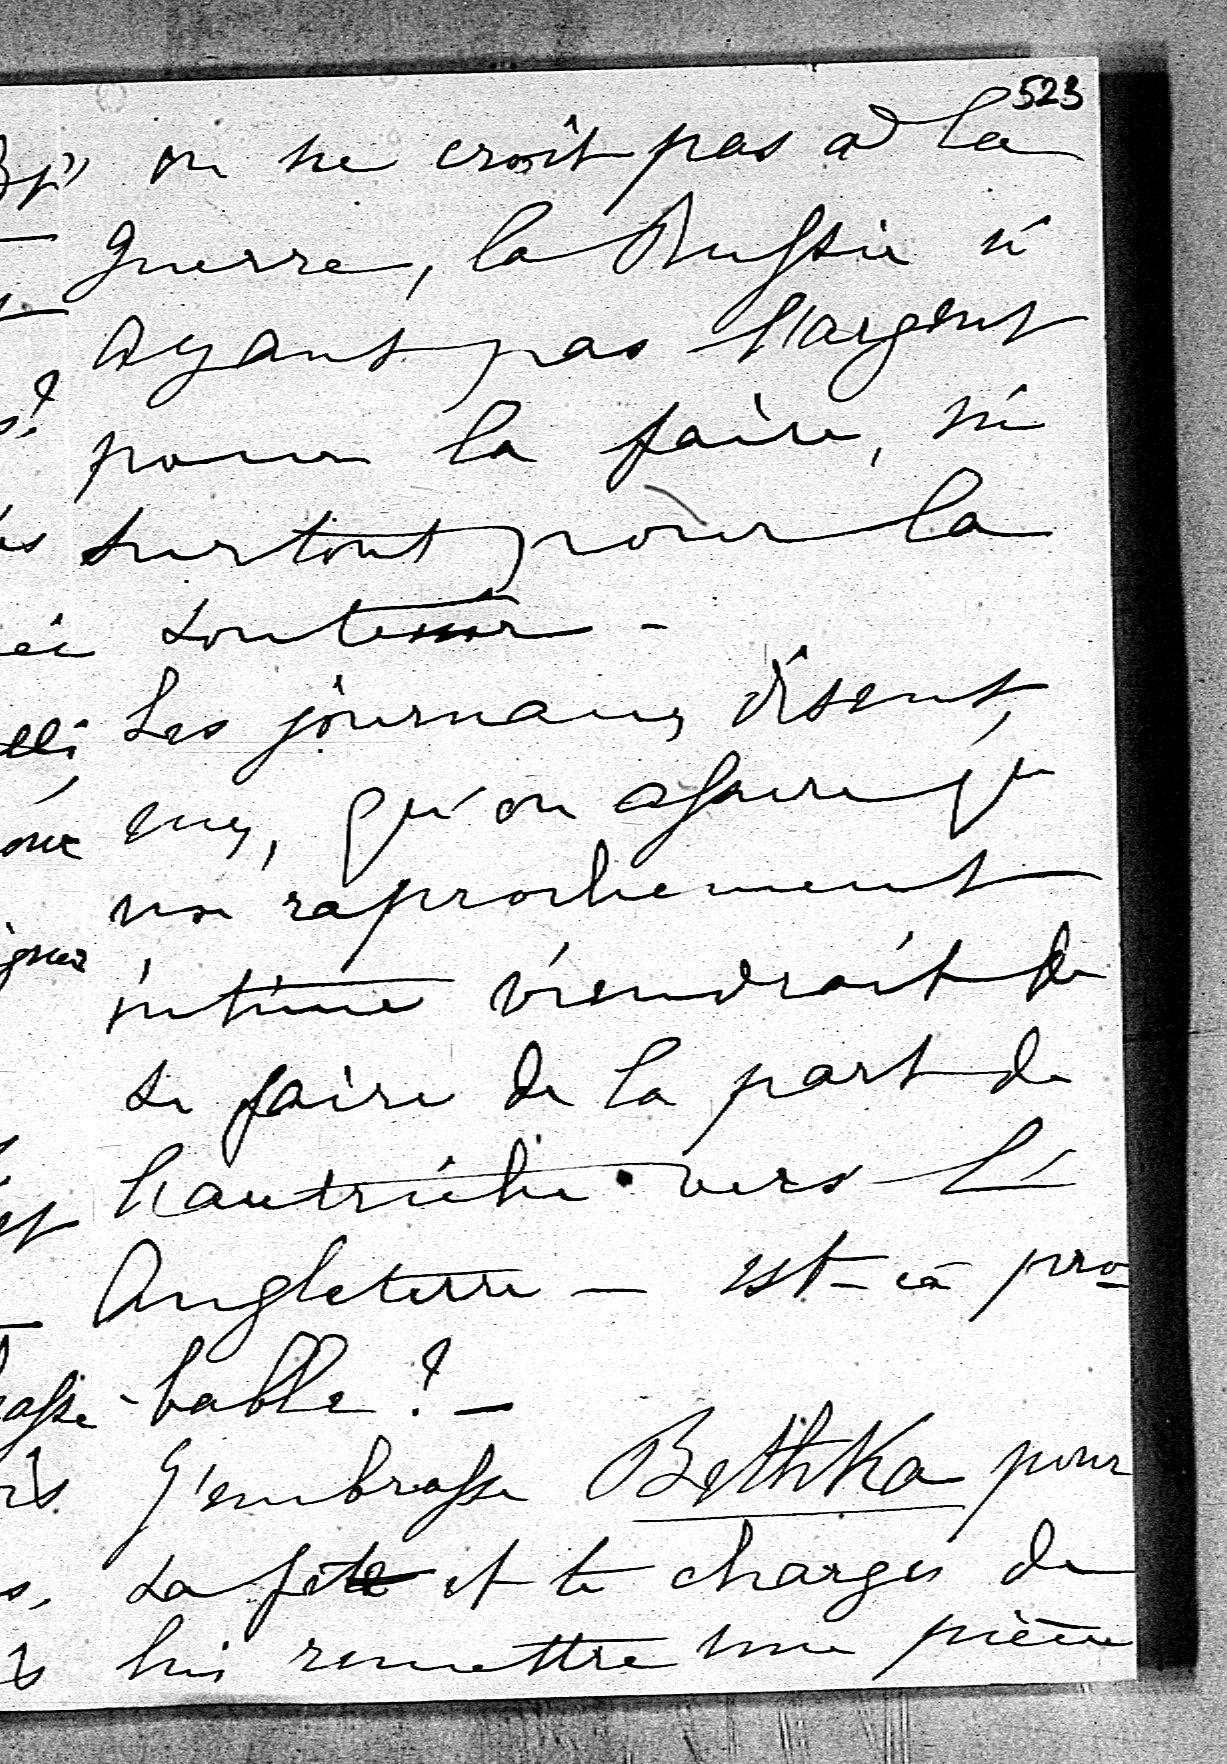 523
on ne croit pas à la
guerre, la Russie n'
ayant pas l'argent
pour la faire, ni
surtout pour la
soutenir -
Les journaux disent,
eux, qu'on assure qu'
un raprochement
intime viendrait de
se faire de la part de
l'autriche vers l'
Angleterre — est-ca pro-
-bable ? —
J'embrasse Bethka pour
sa fête et te charges de
lui remettre une pièce